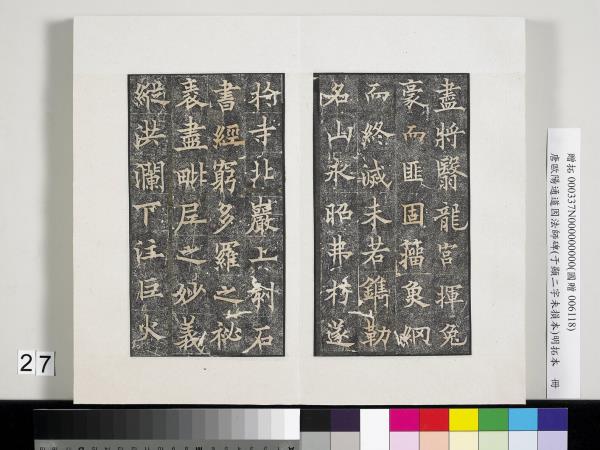 盡將翳龍宮揮兔
豪而匪固籀象網
而終滅未若鐫勒
名山永昭弗朽遂
於寺北巖上刻石
書經窮多羅之祕
袠盡毗尼之妙義
縱洪瀾下注巨火
贈拓 000337N000000000(國贈 006118)
唐歐陽通道因法師碑(于顯二字未損本)明拓本 冊
27